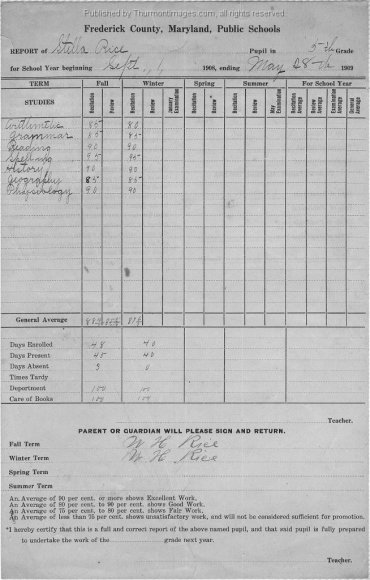 Published by Thurmontimages.com, all rights reserved
Frederick County, Maryland, Public Schools
REPORT of Stella Rice Pupil in 5th Grade
for School Year beginning Sept 1908, ending May 28th 1909
TERM Fall Winter Spring Summer For School Year
STUDIES Recitation Review Recitation Review January Examination Recitation Review Recitation Review May Examination Recitation Average Review Average Examination Average General Average
Arithmetic 85 80
Grammar 85 85
Reading 90 90
Spelling 95 95
History 90 90
Geography 85 85
Physiology 90 90
General Average
Days Enrolled 48 40
Days Present 45 40
Days Absent 3 0
Times Tardy
Deportment 100 100
Care of Books 100 100
Teacher.
PARENT OR GUARDIAN WILL PLEASE SIGN AND RETURN.
Fall Term W H Rice
Winter Term W H Rice
Spring Term
Summer Term
An Average of 90 per cent. or more shows Excellent Work.
An Average of 80 per cent. to 90 per cent. shows Good Work.
An Average of 75 per cent. to 80 per cent. shows Fair Work.
An Average of less than 75 per cent. shows unsatisfactory work, and will not be considered sufficient for promotion.
*I hereby certify that this is a full and correct report of the above named pupil, and that said pupil is fully prepared
to undertake the work of the grade next year.
Teacher.